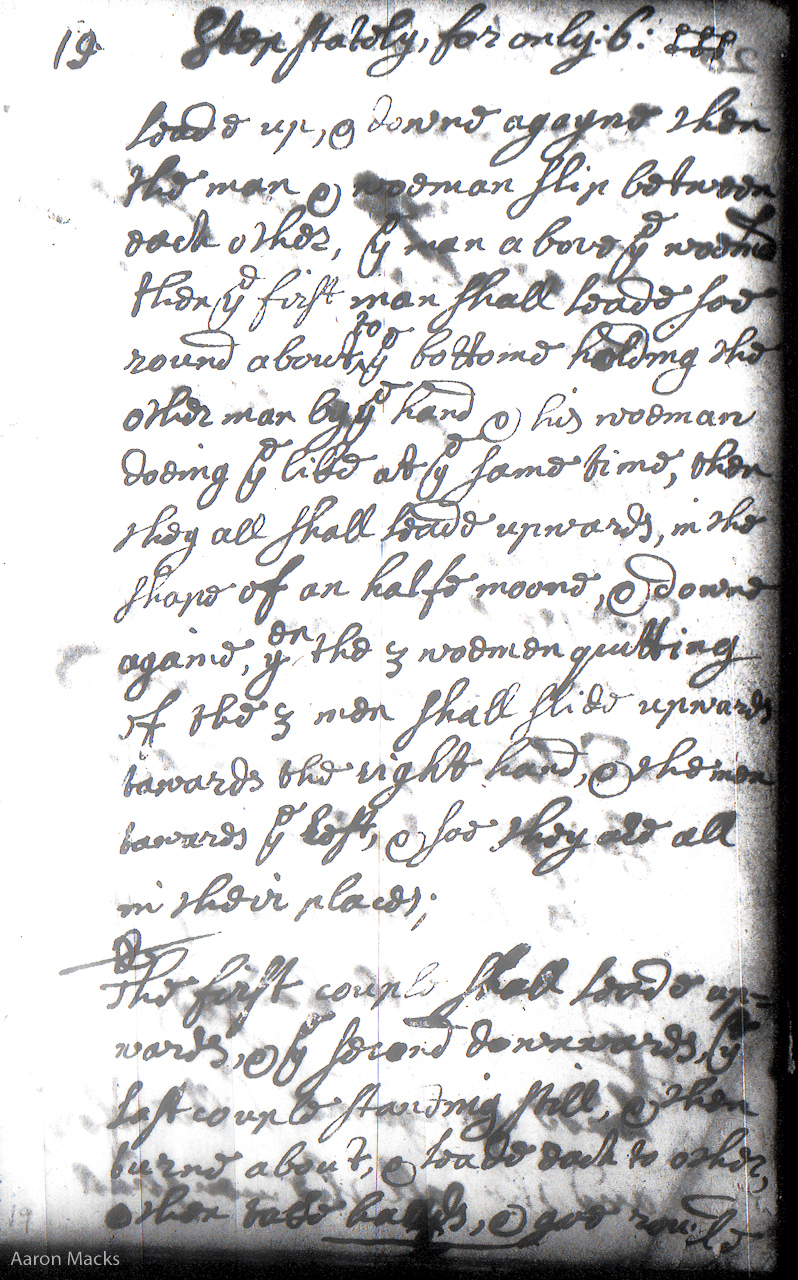 19. Step stately, for only: 6:
leade up, & downe agayne then
the man & woeman slip between
each other, ye man above ye woeman
then ye first man shall leade soe
round about to ye bottome holding the
other man by ye hand & his woeman
doeing ye like at ye same time, then
they all shall leade upwards, in the
shape of an halfe moone, & downe
againe, yen the 3 woemen quitting
of the 3 men shall slide upwards
towards the right hand, & the men
towards ye left, & soe they are all
in their places;
The first couple shall leade up=
wards, & ye second downwards, ye
last couple standing still, & then
turne about, & leade each to other,
then take hands, & goe rounde
19
Aaron Macks